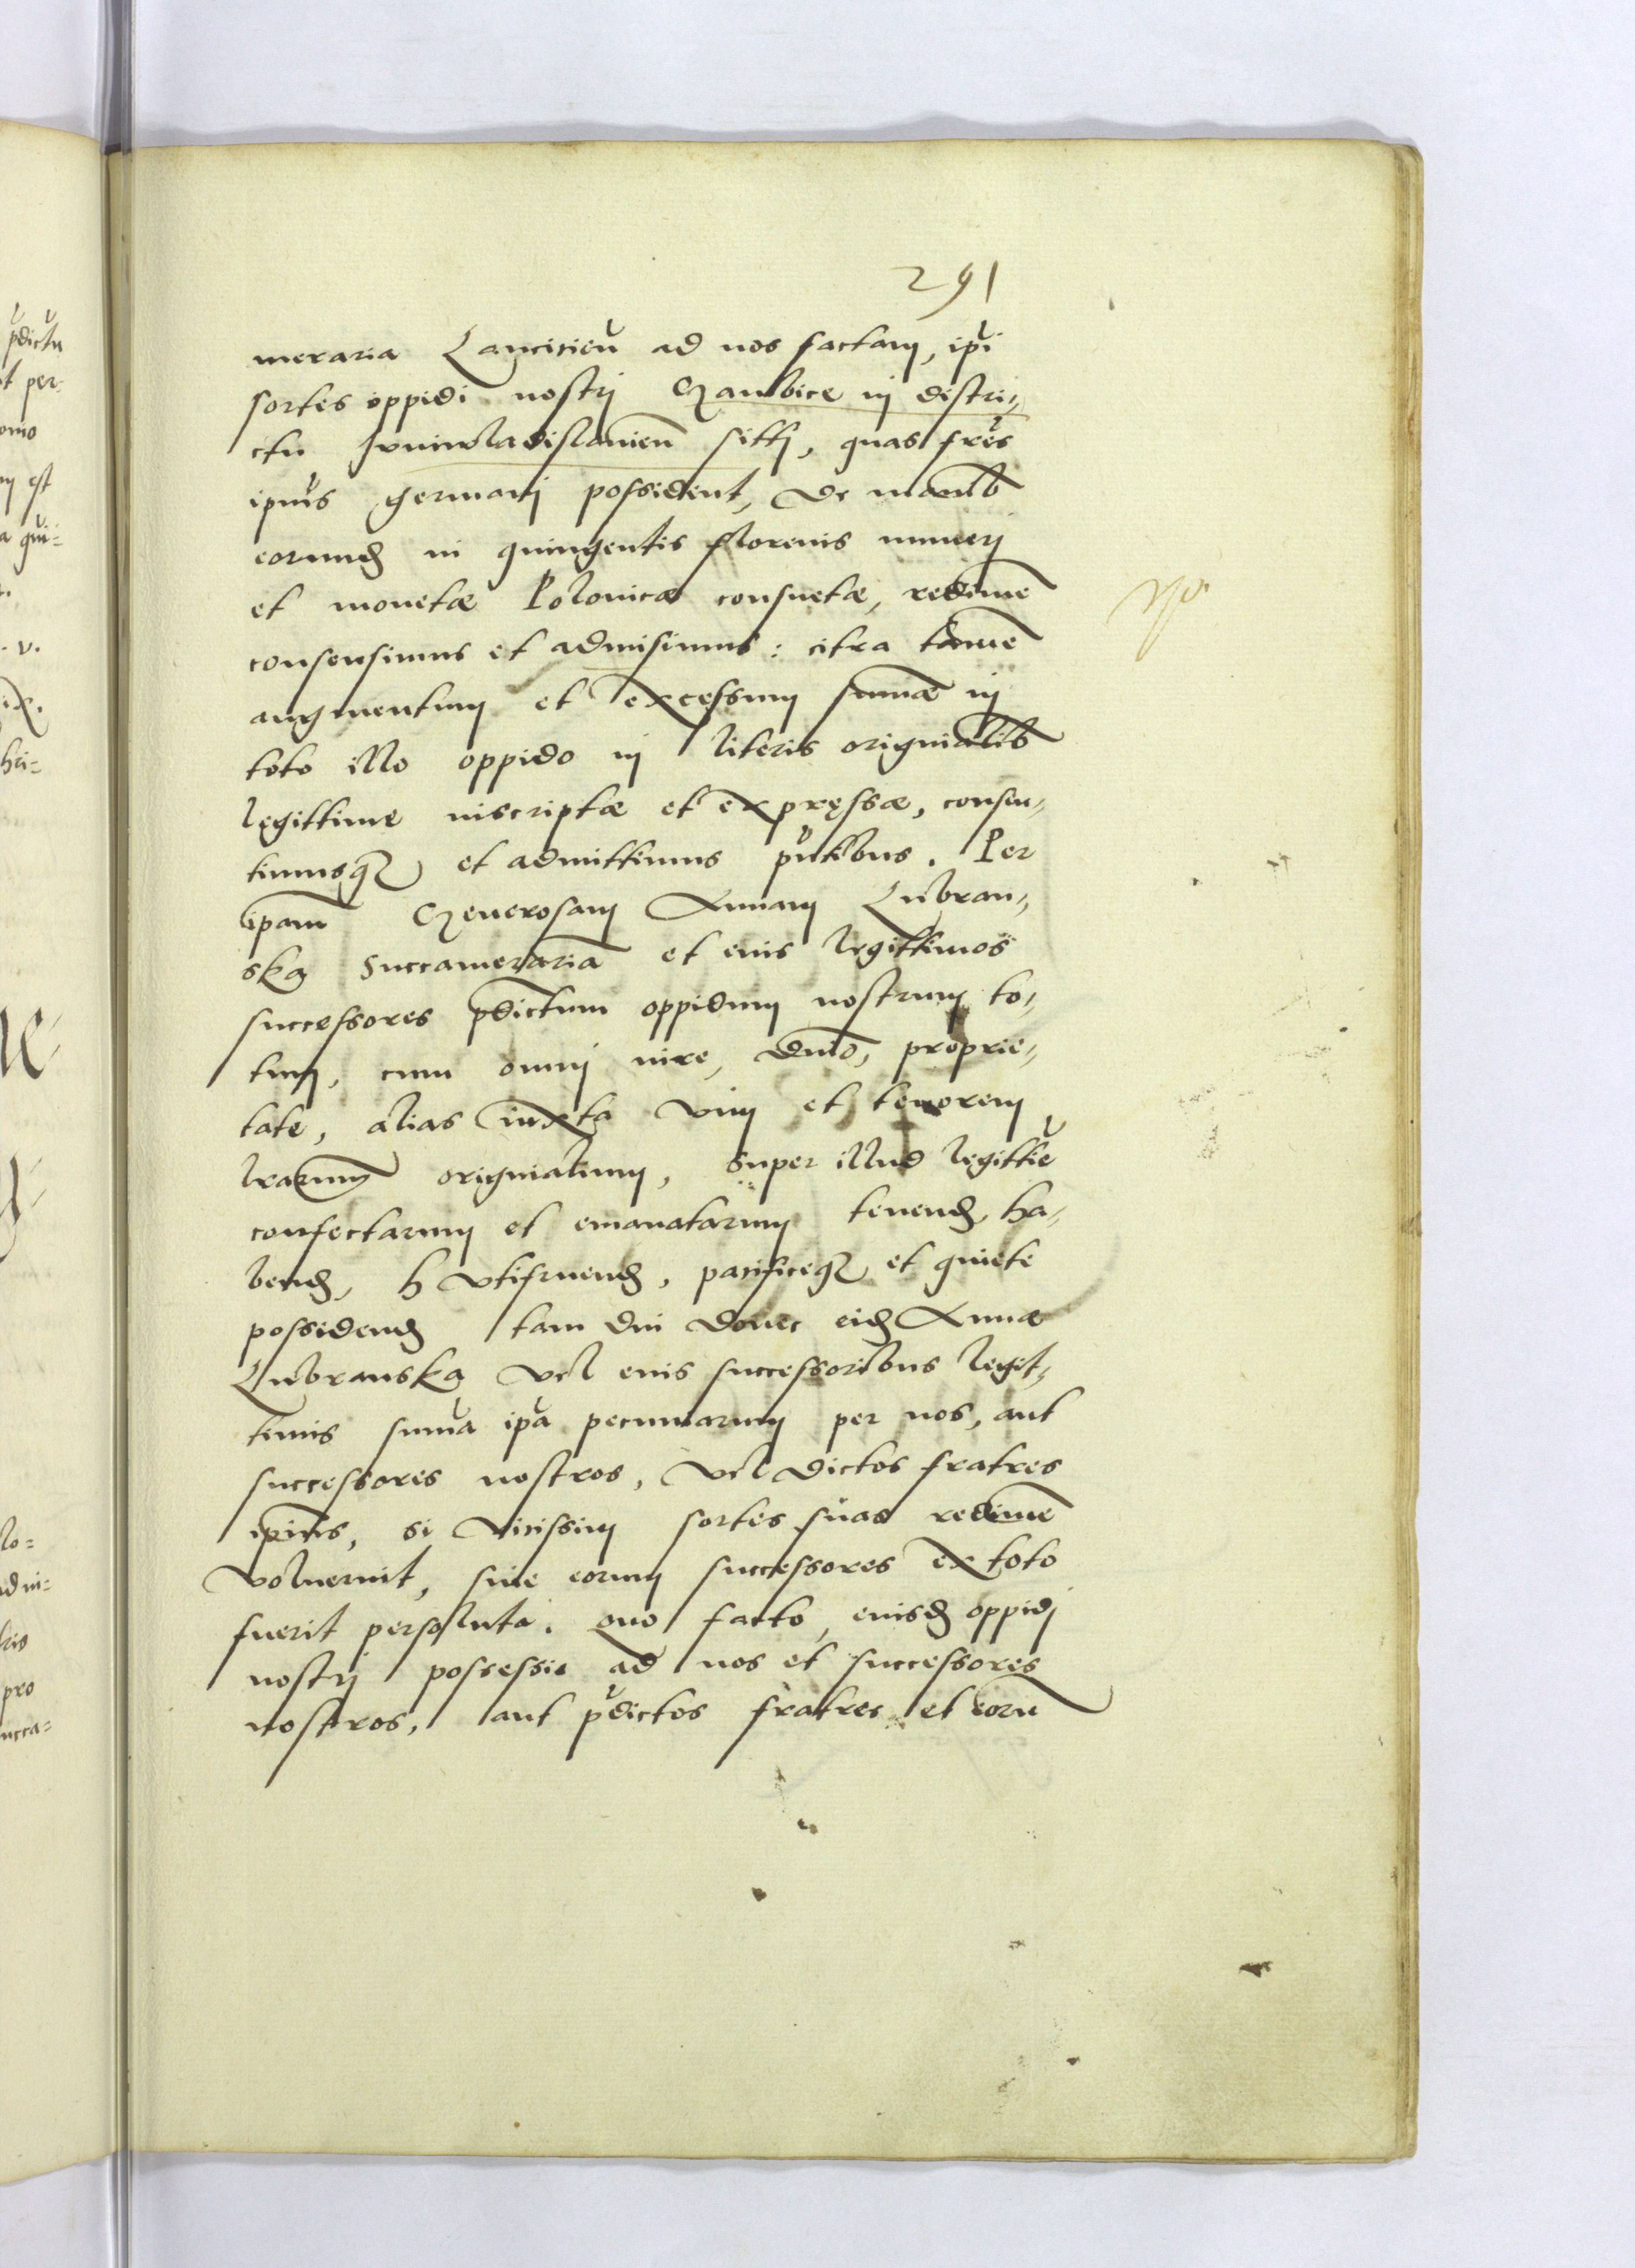 291
meraria Lancicień ad nos factam, ipi
sortes oppidi nostrj Gambice in distri„
ctu Junivladislavień sittj, quas fres
ipius germanj possident, de manib
eorund in quingentis florenis numerj
et monetæ Polonicæ consuetæ, redime
consensimus et admisimus: citra tame
augmentum et excessum summæ in
toto illo oppido in literis originalib
legittime inscriptæ et expressæ, consen„
timusq et admittimus pntibus. Per
ipam Generosam Annam Lubran„
ska Succameraria et eius legittimos
successores pdictum oppidum nostrum to„
tum, cum omni iure, dnio, proprie„
tate, alias iuxta vim et tenorem
lrarum originalium, super illud legittie
confectarum et emanatarum tenend, ha„
bend, utifruend, pacificeq et quiete
possidend tam diu donec eid Annæ
Lubranska vel eius successoribus legit„
timis summa ipa pecuniarum per nos, aut
successores nostros, vel dictos fratres
ipius, si vicissim sortes suas redime
voluerint, siue eorum successores ex toto
fuerit persoluta. Quo facto, eiusd oppidj
nostrj possessio ad nos et successores
nostros, aut pdictos fratres et eoru